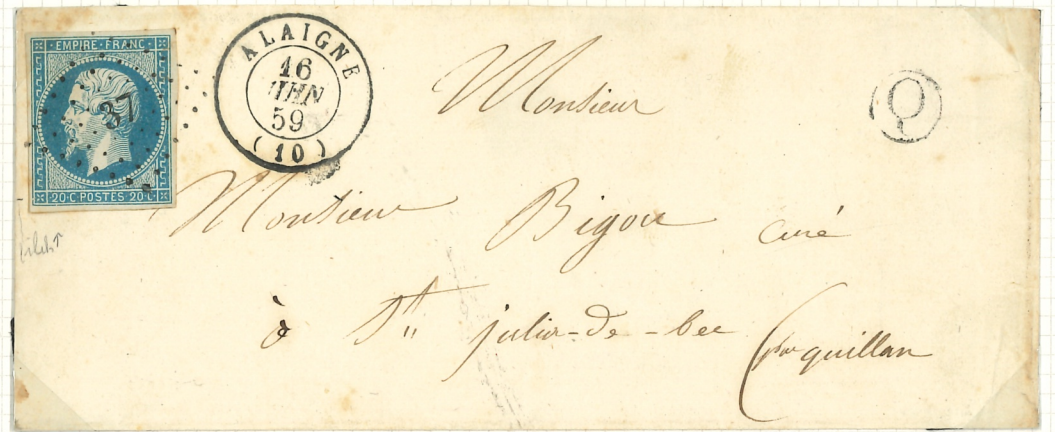 EMPIRE·FRANC·
37
20·C·POSTES 20·C·
ALAIGNE
16
JUIN
59
(10)
Q
Monsieur
Monsieur Bigou curé
à St julia-de-bec
(par quillan